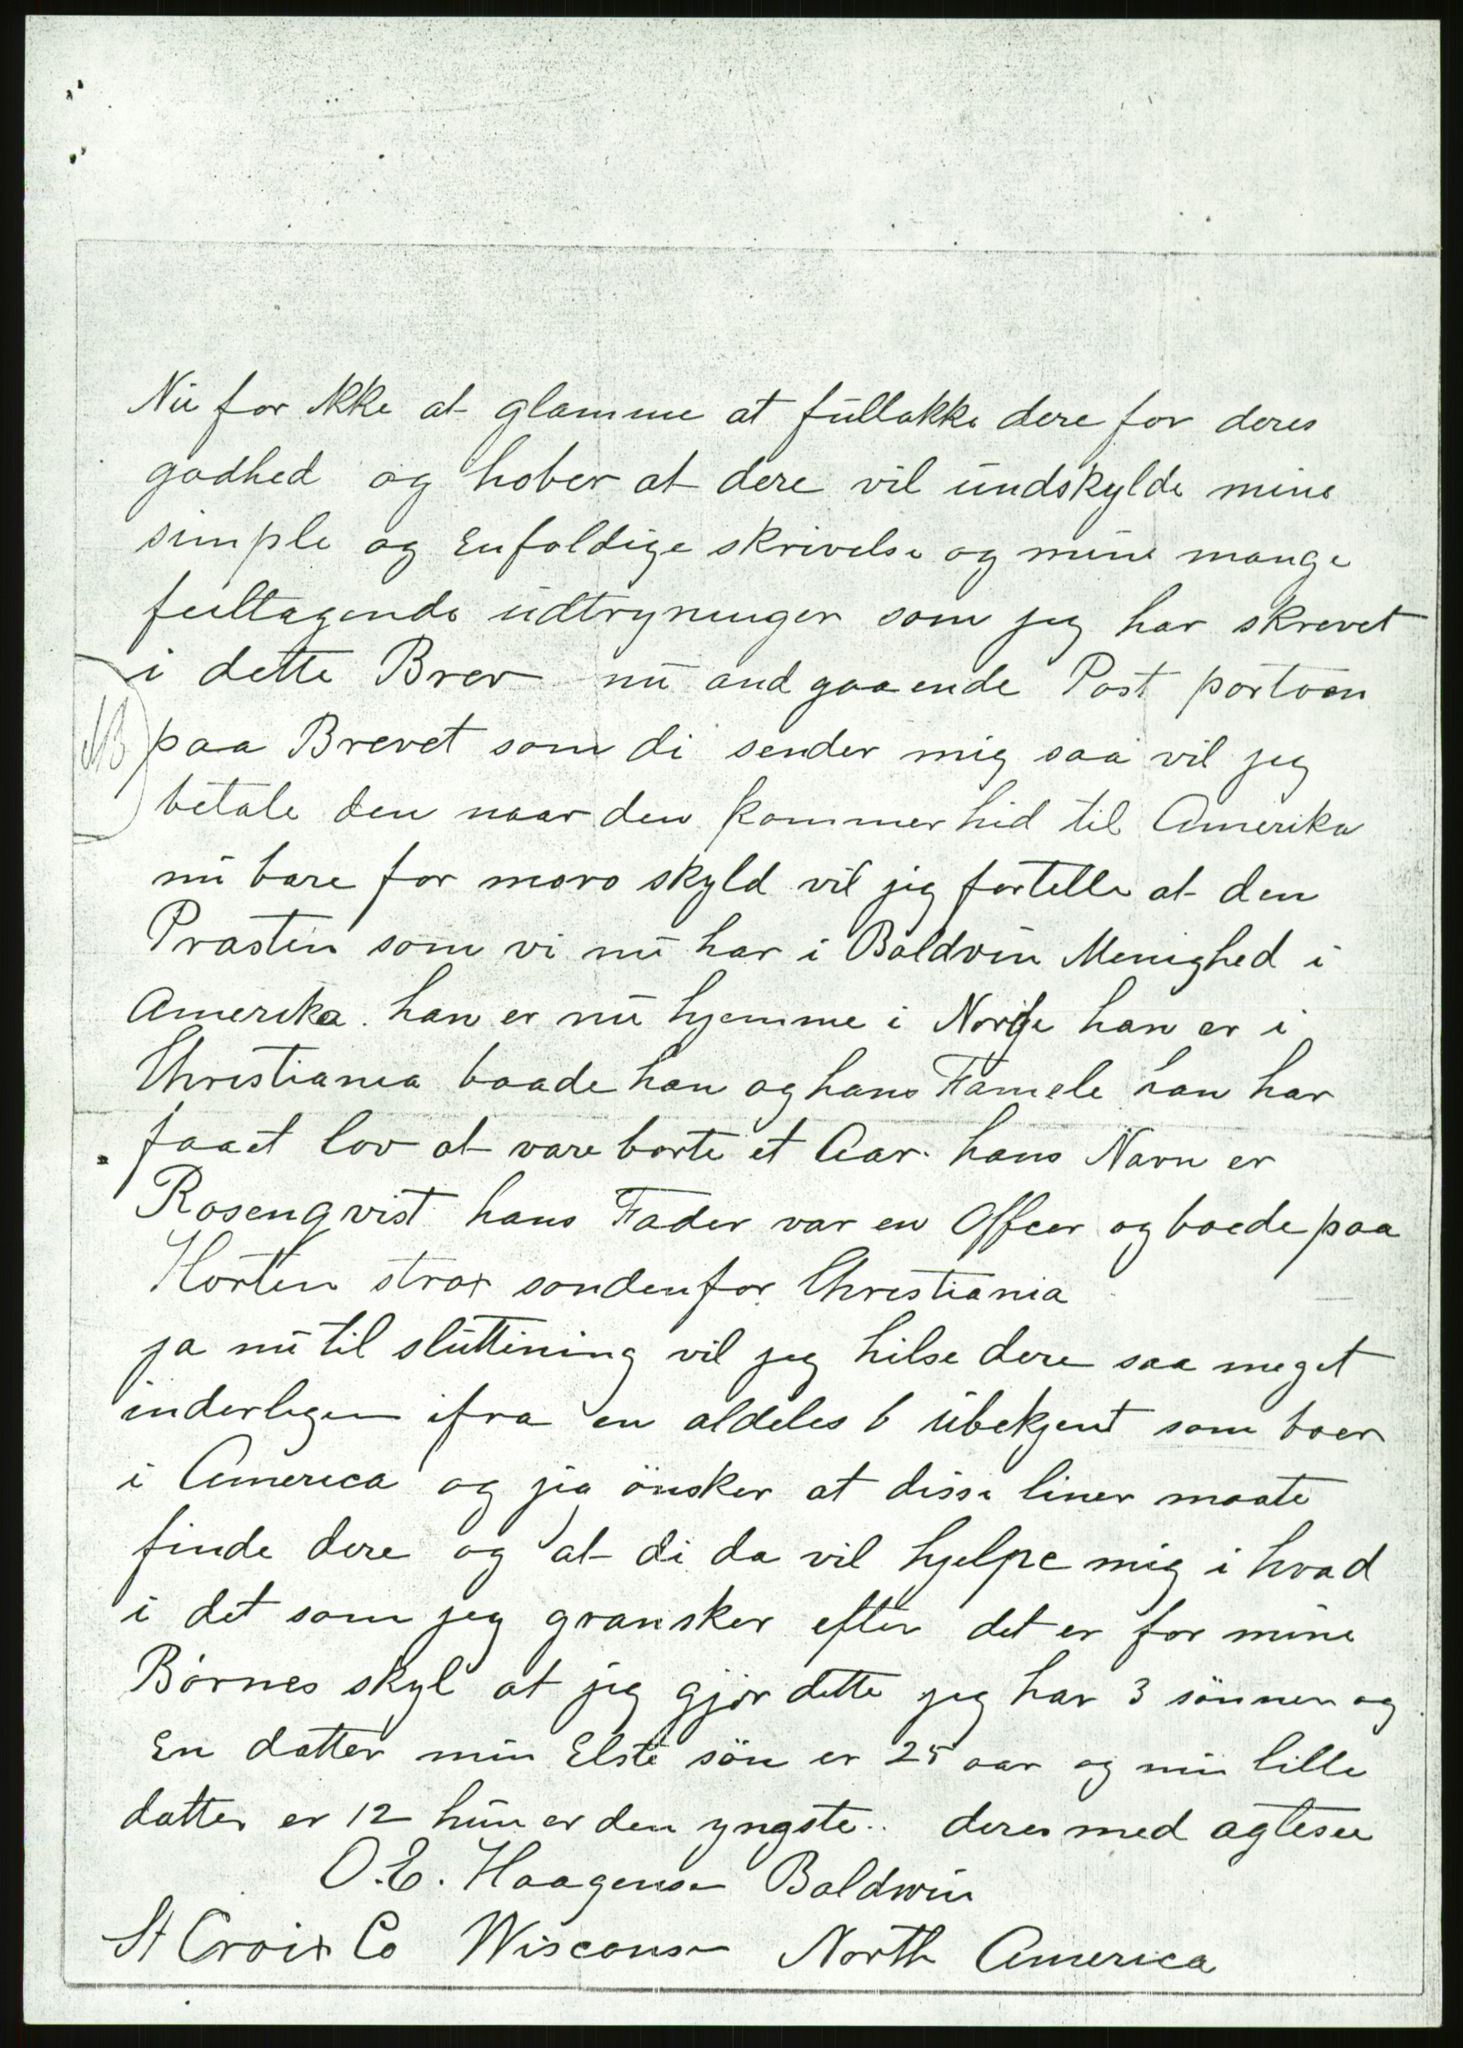 Nu for Ikke at glamme at fullakke dere for deres
godhed og hober at dere vil undskylde mine
simple og Enfoldige skrivelse og mine mange
feiltagende udtryninger som jeg har skrevet
i dette Brev nu and gaaende Post portoen
NB paa Brevet som di sender mig saa vil jeg
betale den naar den kommer hid til Amerika
nu bare for moro skyld vil jeg fortelle at den
Prasten som vi nu har i Baldvin Menighed i
Amerika. han er nu hjemme i Norge han er i
Christiania baade han og hans Famele han har
faaet lov at vare borte et Aar. hans Navn er
Rosenqvist hans Fader var en Offcer og boede paa
Horten strax sondenfor Christiania
ja nu til sluttining vil jeg hilse dere saa meget
inderligen ifra en aldeles 6 übekjent som boer
i America og jeg önsker at disse liner maate
finde dere og at di da vil hjelpe mig i hvad
i det som jeg gransker efter det er for mine
Börnes skyl at jeg gjör dette jeg har 3 sönner og
En datter min Elste sön er 25 aar og min lille
datter er 12 hun er den yngste.. deres med agtese
O. E. Haagensen Baldwin
St Croix Co Wisconsin North America